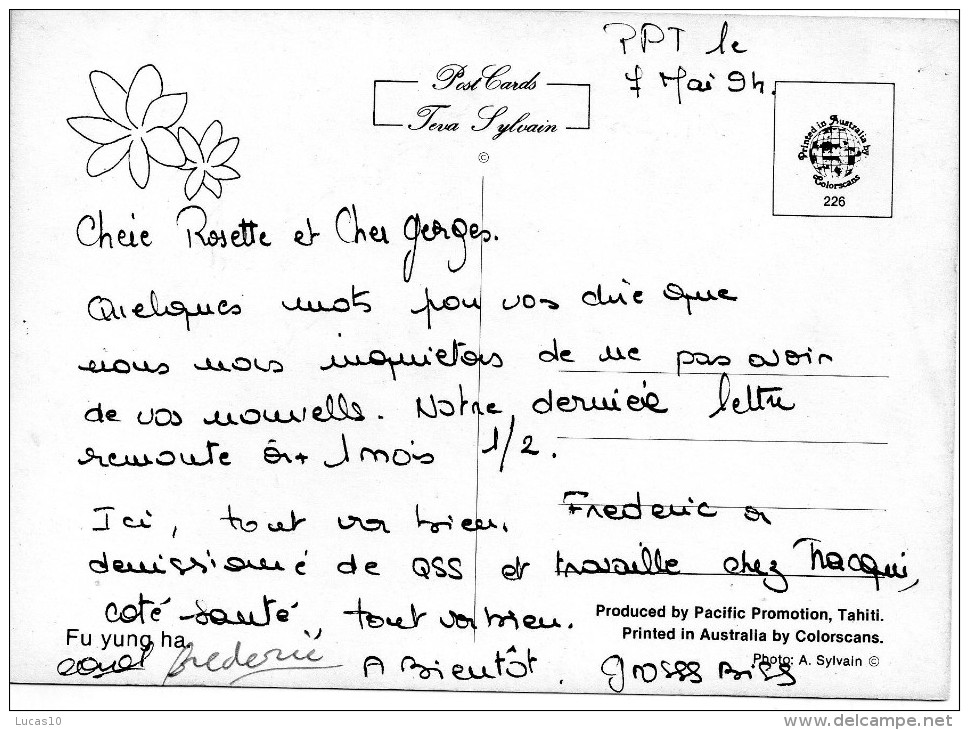 PPT le
7 Mai 94.
Post Cards
Teva Sylvain
©
Printed in Australia by
Colorscans
226
Chère Rosette et Cher Georges.
Quelques mots pour vos dire que
nous nous inquietons de ne pas avoir
de vos nouvelle. Notre dernière lettre
remonte à + 1 mois 1/2.
Ici, tout va bien. Frederic a
demissionné de QSS et travaille chez Tracqui,
coté santé tout va bien.
Produced by Pacific Promotion, Tahiti.
Printed in Australia by Colorscans.
Photo: A. Sylvain ©
Fu yung ha
Frederic
A Bientôt. Grosss Biss
Lucas10
delcampe.net